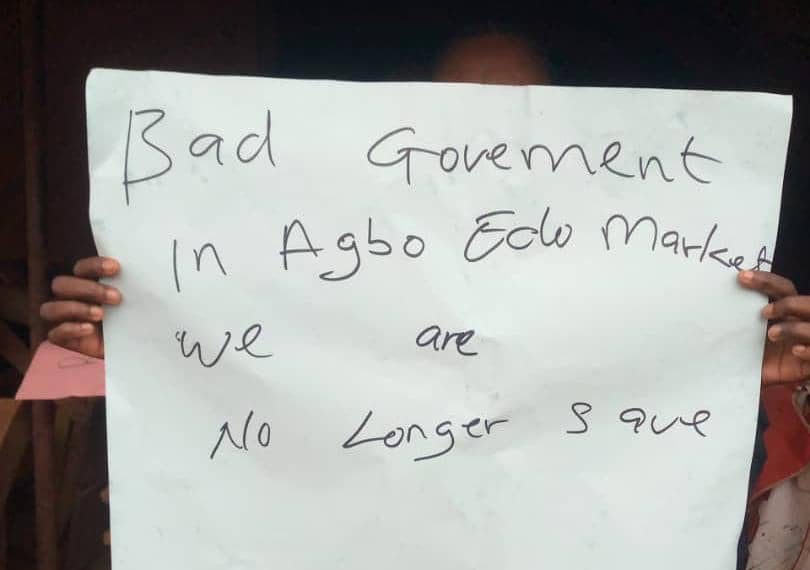 Bad Govement
In Agbo Edo Market
we are
No Longer Save